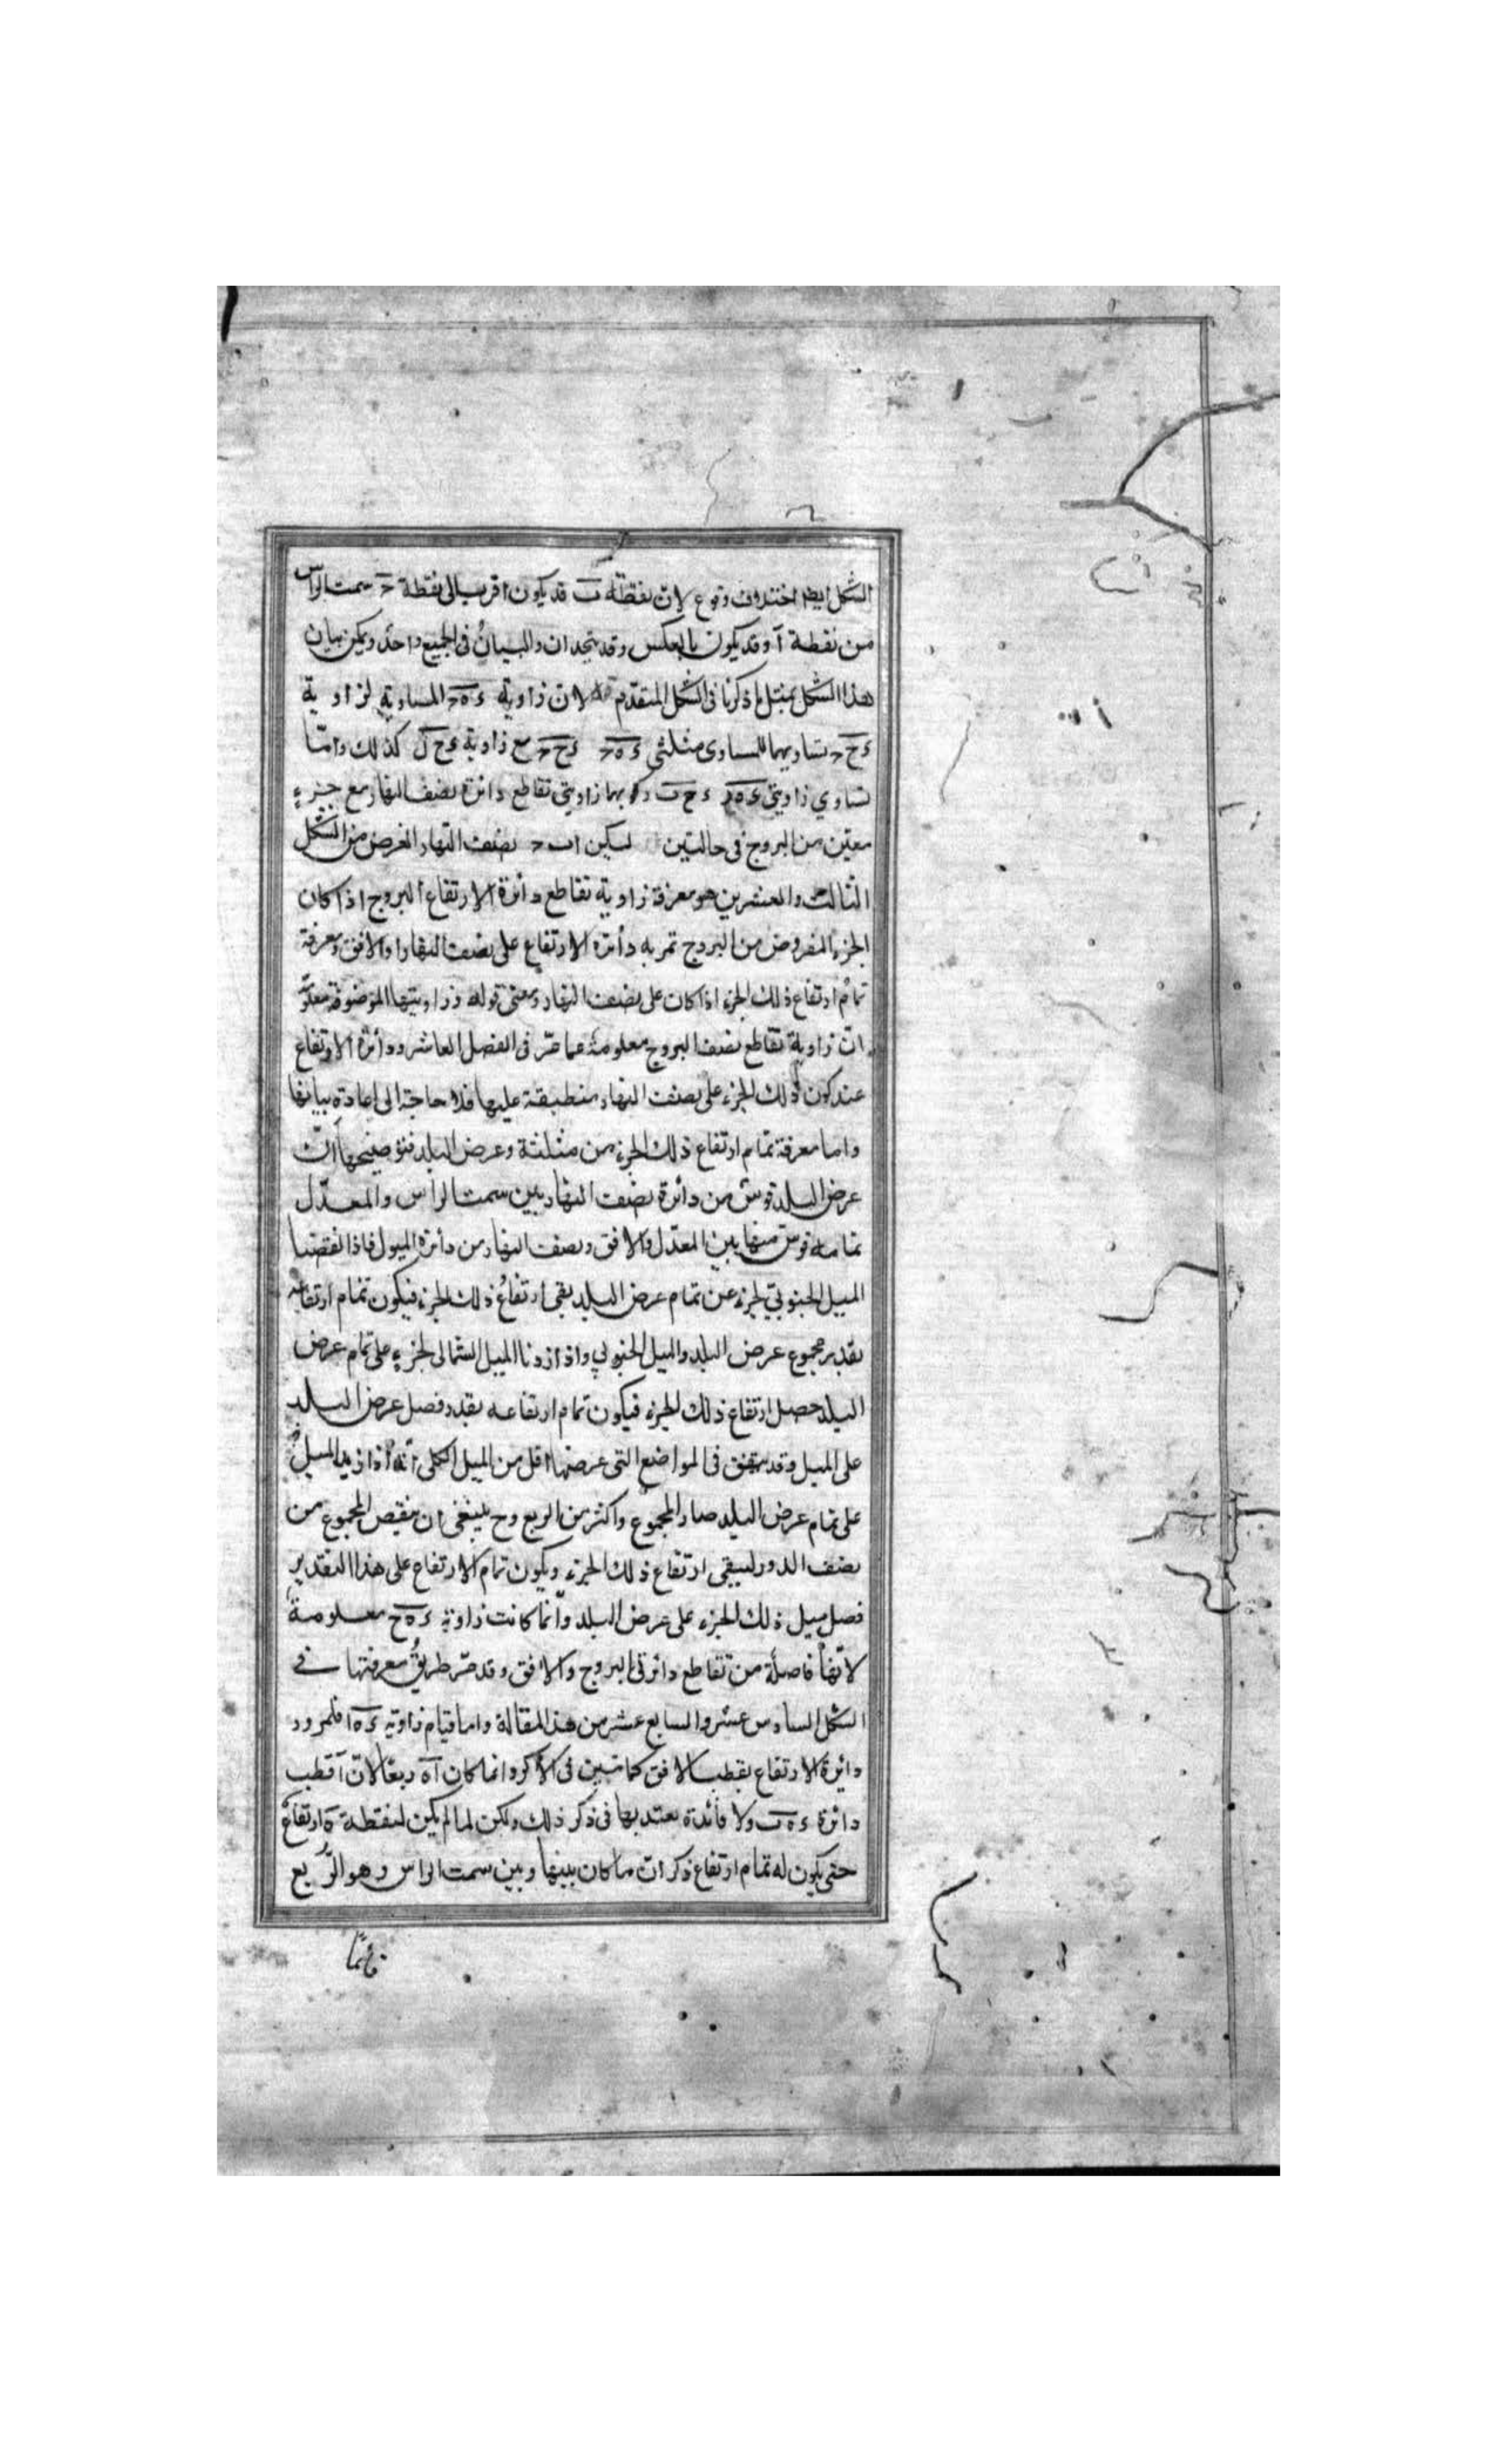 الشكل ايضا اختلاف وقوع لان نقطة ب قد يكون اقرب الى نقطة ح سمت الراس
من نقطة آ وقد يكون بالعكس وقد يتحدان والبيان فى الجميع واحد ويمكن بيان
هذا الشكل بمثل ما ذكرنا فى الشكل المتقدم لان زاوية ءهح المساوية لزاوية
ءحح تساويهما لتساوى مثلثى ءهح ءحح مع زاوية ءحل كذلك واما
تساوي زاويتي ءهز ءحب وهما زاويتي تقاطع دائرة نصف النهار مع جزء
معين من البروج فى حالتين ليكن ابح نصف النهار الغرض من الشكل
الثالث والعشرين هو معرفة زاوية تقاطع دائرة الارتفاع البروج اذا كان
الجزء المفروض من البروج تمر به دائرة الارتفاع على نصف النهار او الافق ومعرفة
تمام ارتفاع ذلك الجزء اذا كان على نصف النهار ومعنى قوله وزاويتها الموضوفة معلو
ان زاوية تقاطع نصف البروج معلومة مما مر فى الفصل العاشر ودائرة الارتفاع
عند كون ذلك الجزء على نصف النهار منطبقة عليها فلا حاجة الى اعادة بيانها
واما معرفة تمام ارتفاع ذلك الجزء من مثلثة وعرض البلد فتوضيحها ان
عرض البلد قوس من دائرة نصف النهار بين سمت الراس والمعدل
تمامه قوس منها بين المعدل والافق ونصف النهار من دائرة الميول فاذا نقصنا
الميل الجنوبي لجزء عن تمام عرض البلد بقى ارتفاع ذلك الجزء فيكون تمام ارتفاعه
بقدر مجموع عرض البلد والميل الجنوبي واذا زدنا الميل الشمالى لجزء على تمام عرض
البلد حصل ارتفاع ذلك الجزء فيكون تمام ارتفاعه بقدر فصل عرض البلد
على الميل وقد يتفق فى المواضع التى عرضها اقل من الميل الكلى انه اذا زيد الميل
على تمام عرض البلد صار المجموع واكثر من الربع وح ينبغى ان ينقص المجموع من
نصف الدور ليبقى ارتفاع ذلك الجزء ويكون تمام الارتفاع على هذا التقدير
فصل ميل ذلك الجزء على عرض البلد وانما كانت زاوية ءهح معلومة
لانها فاصلة من تقاطع دائرتى البروج والافق وقد مر طريق معرفتها فى
الشكل السادس عشر والسابع عشر من هذا المقالة واما قيام زاوية ءه‍ا فلمرور
دائرة الارتفاع بقطب الافق كما تبين فى الاكر وانما كان آه ربعا لان آ قطب
دائرة ءهب ولا فائدة يعتد بها فى ذكر ذلك ولكن لما لم يكن لنقطة ه ارتفاع
حتى يكون له تمام ارتفاع ذكر ان ما كان بينها وبين سمت الراس وهو الربع
قائما